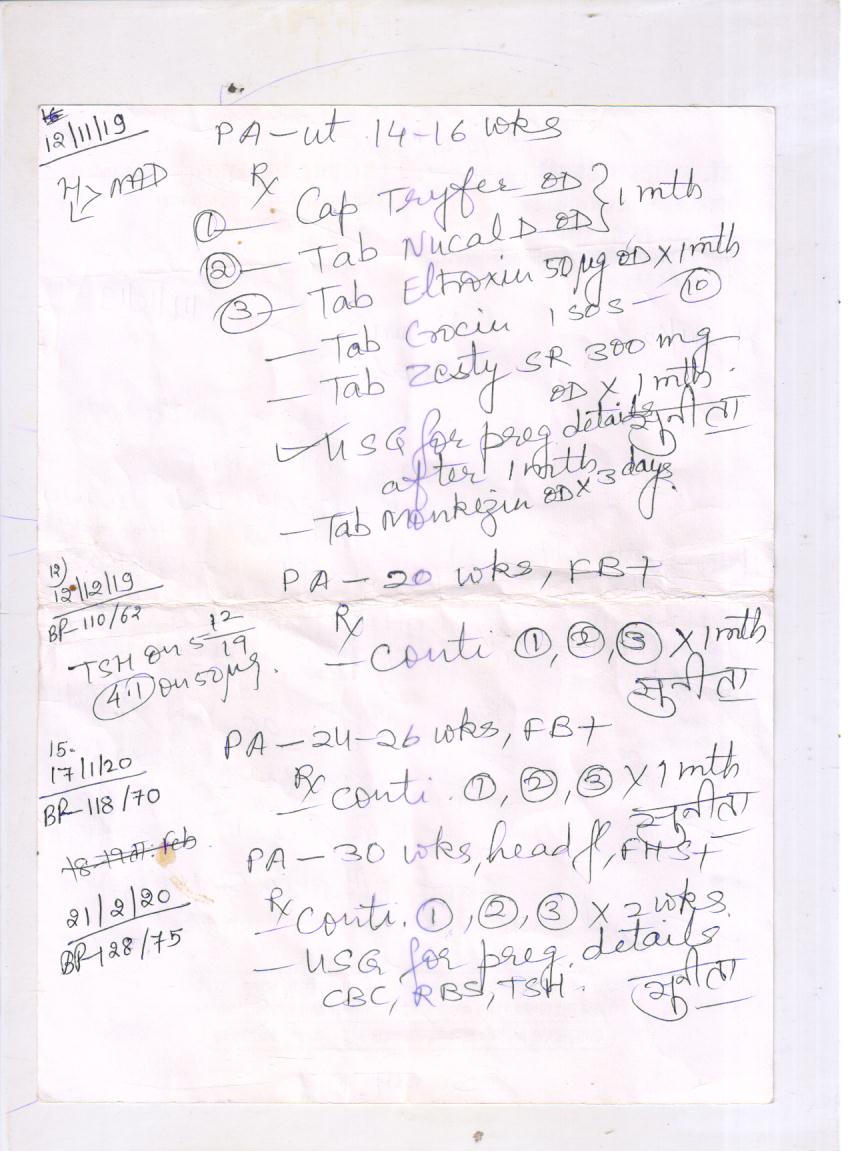 12/11/19
PA-ut 14-16 wks
H/L > NAD
Rx
① Cap Tryfer OD } 1 mth
② Tab Nucal D OD
③ - Tab Eltroxin 50 µg OD X 1 mth
- Tab Crocin 1 SOS - ⑩
- Tab Zesty SR 300 mg
OD X 1 mth.
✓ USG for preg details सुनीता
after 1 mth
- Tab Monkezin OD X 3 days.
12)
12/12/19
PA - 20 wks, FB+
BP-110/62
TSH on 5 12/19
4.1 on 50 µg.
Rx
- conti ①, ②, ③ X 1 mth
सुनीता
15.
17/1/20
PA - 24-26 wks, FB+
BP-118/70
Rx conti. ①, ②, ③ X 1 mth
सुनीता
18-19 Feb
PA - 30 wks, head fl, FHS+
21/2/20
BP-128/75
Rx conti. ①, ②, ③ X 2 wks.
- USG for preg. details
CBC, RBS, TSH.
सुनीता